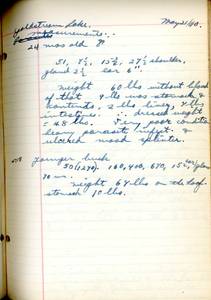 Goldstream Lake. May 21/40.
measurements.
24 mos old
51, 7½, 15½, 27½ shoulder,
gland 2½ ear 6"
weight 60 lbs without blood
of that 9 lbs was stomach &
contents, 2 lbs liver, 4 lbs
intestines ∴ dressed weight
= 48 lbs. Very poor condition
heavy parasite infest. &
ulcered mash splinter.
younger buck
50 (1270). 160, 400, 670, 152
weight 64 lbs on the hoof
stomach 10 lbs.